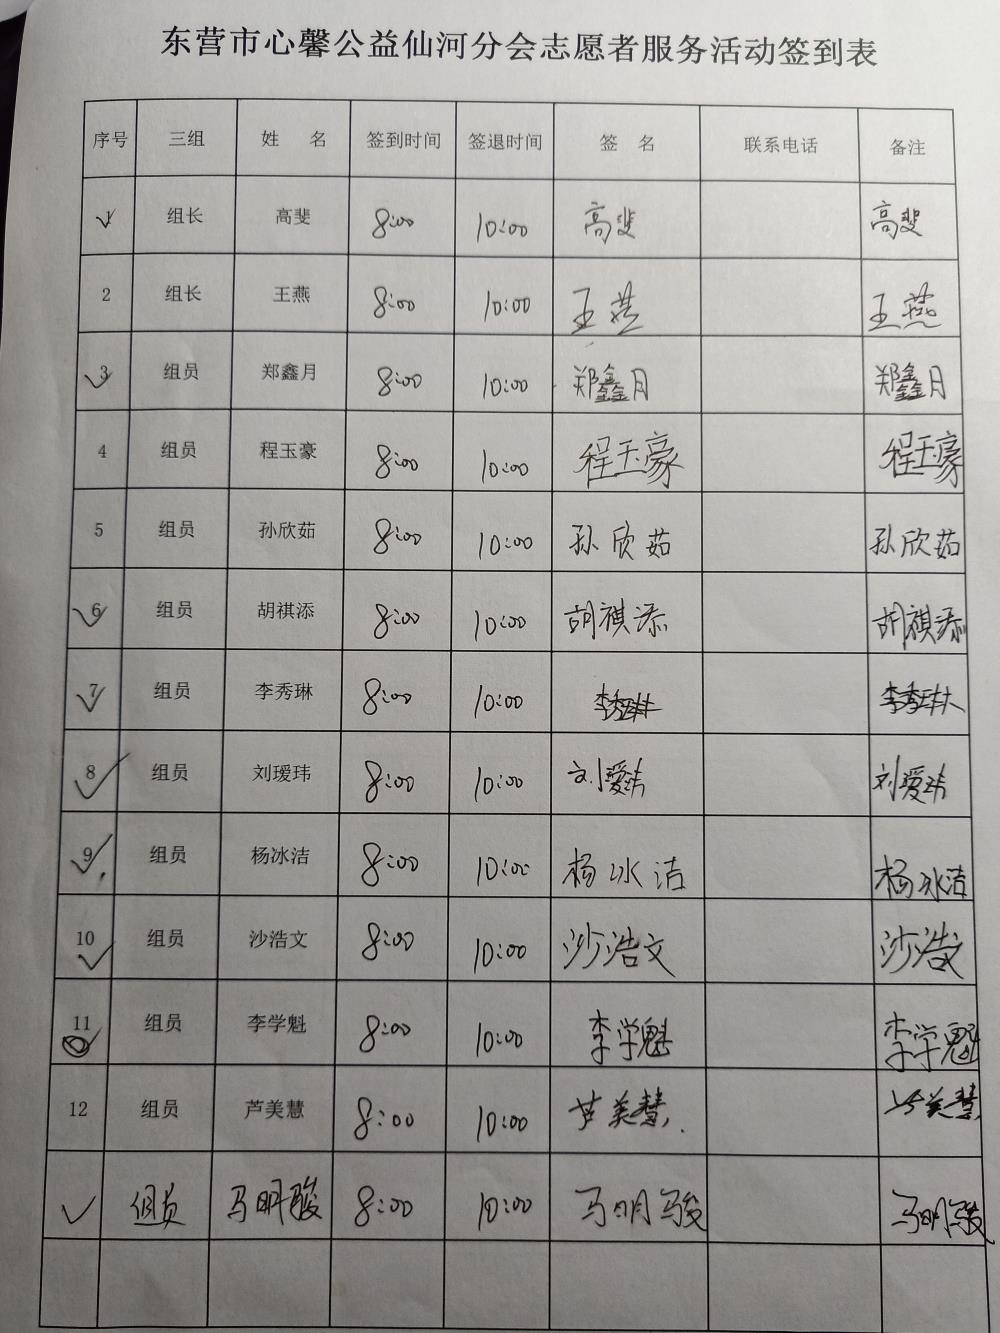 东营市心馨公益仙河分会志愿者服务活动签到表
序号 三组 姓 名 签到时间 签退时间 签 名 联系电话 备注
1 组长 高斐 8:00 10:00 高斐 高斐
2 组长 王燕 8:00 10:00 王燕 王燕
3 组员 郑鑫月 8:00 10:00 郑鑫月 郑鑫月
4 组员 程玉豪 8:00 10:00 程玉豪 程玉豪
5 组员 孙欣茹 8:00 10:00 孙欣茹 孙欣茹
6 组员 胡祺添 8:00 10:00 胡祺添 胡祺添
7 组员 李秀琳 8:00 10:00 李秀琳 李秀琳
8 组员 刘瑷玮 8:00 10:00 刘瑷玮 刘瑷玮
9 组员 杨冰洁 8:00 10:00 杨冰洁 杨冰洁
10 组员 沙浩文 8:00 10:00 沙浩文 沙浩文
11 组员 李学魁 8:00 10:00 李学魁 李学魁
12 组员 芦美慧 8:00 10:00 芦美慧 芦美慧
组员 马明骏 8:00 10:00 马明骏 马明骏